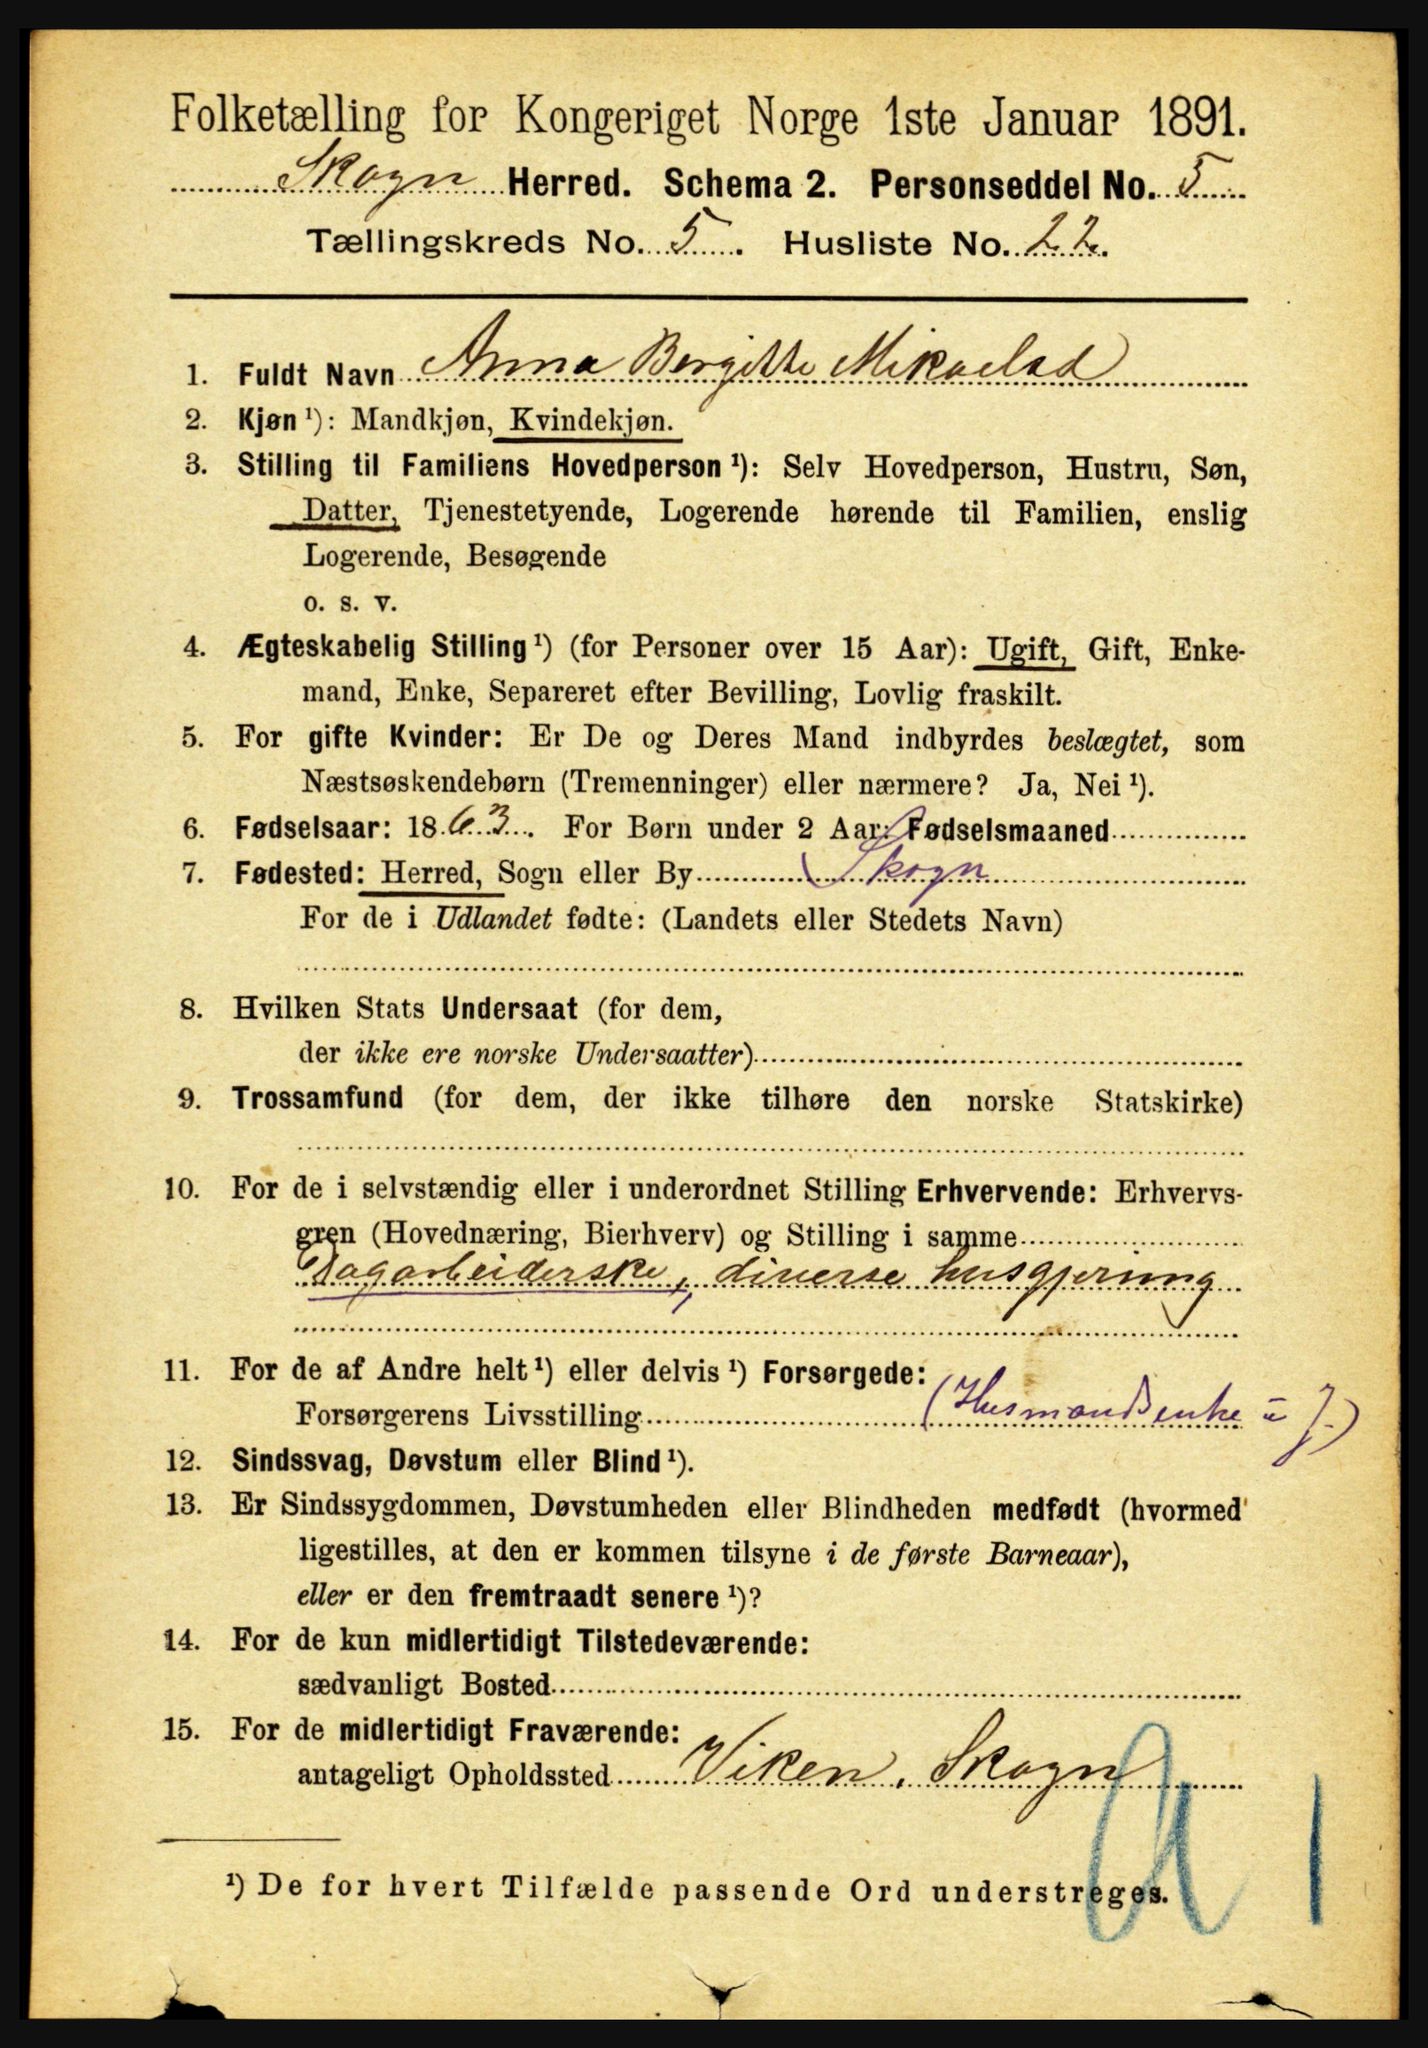 Folketælling for Kongeriget Norge 1ste Januar 1891.
Skogn Herred. Schema 2. Personseddel No. 5
Tællingskreds No. 5. Husliste No. 22.
1. Fuldt Navn Anna Bergitte Mikaelsd
2. Kjøn ¹): Mandkjøn, Kvindekjøn.
3. Stilling til Familiens Hovedperson ¹): Selv Hovedperson, Hustru, Søn,
Datter, Tjenestetyende, Logerende hørende til Familien, enslig
Logerende, Besøgende
o. s. v.
4. Ægteskabelig Stilling ¹) (for Personer over 15 Aar): Ugift, Gift, Enke-
mand, Enke, Separeret efter Bevilling, Lovlig fraskilt.
5. For gifte Kvinder: Er De og Deres Mand indbyrdes beslægtet, som
Næstsøskendebørn (Tremenninger) eller nærmere? Ja, Nei ¹).
6. Fødselsaar: 1863. For Børn under 2 Aar: Fødselsmaaned
7. Fødested: Herred, Sogn eller By Skogn
For de i Udlandet fødte: (Landets eller Stedets Navn)
8. Hvilken Stats Undersaat (for dem,
der ikke ere norske Undersaatter)
9. Trossamfund (for dem, der ikke tilhøre den norske Statskirke)
10. For de i selvstændig eller i underordnet Stilling Erhvervende: Erhvervs-
gren (Hovednæring, Bierhverv) og Stilling i samme
Dagarbeiderske, diverse husgjerning
11. For de af Andre helt ¹) eller delvis ¹) Forsørgede:
Forsørgerens Livsstilling (Husmandsenke u J.)
12. Sindssvag, Døvstum eller Blind ¹).
13. Er Sindssygdommen, Døvstumheden eller Blindheden medfødt (hvormed
ligestilles, at den er kommen tilsyne i de første Barneaar),
eller er den fremtraadt senere ¹)?
14. For de kun midlertidigt Tilstedeværende:
sædvanligt Bosted
15. For de midlertidigt Fraværende:
antageligt Opholdssted Viken, Skogn
¹) De for hvert Tilfælde passende Ord understreges.
a 1